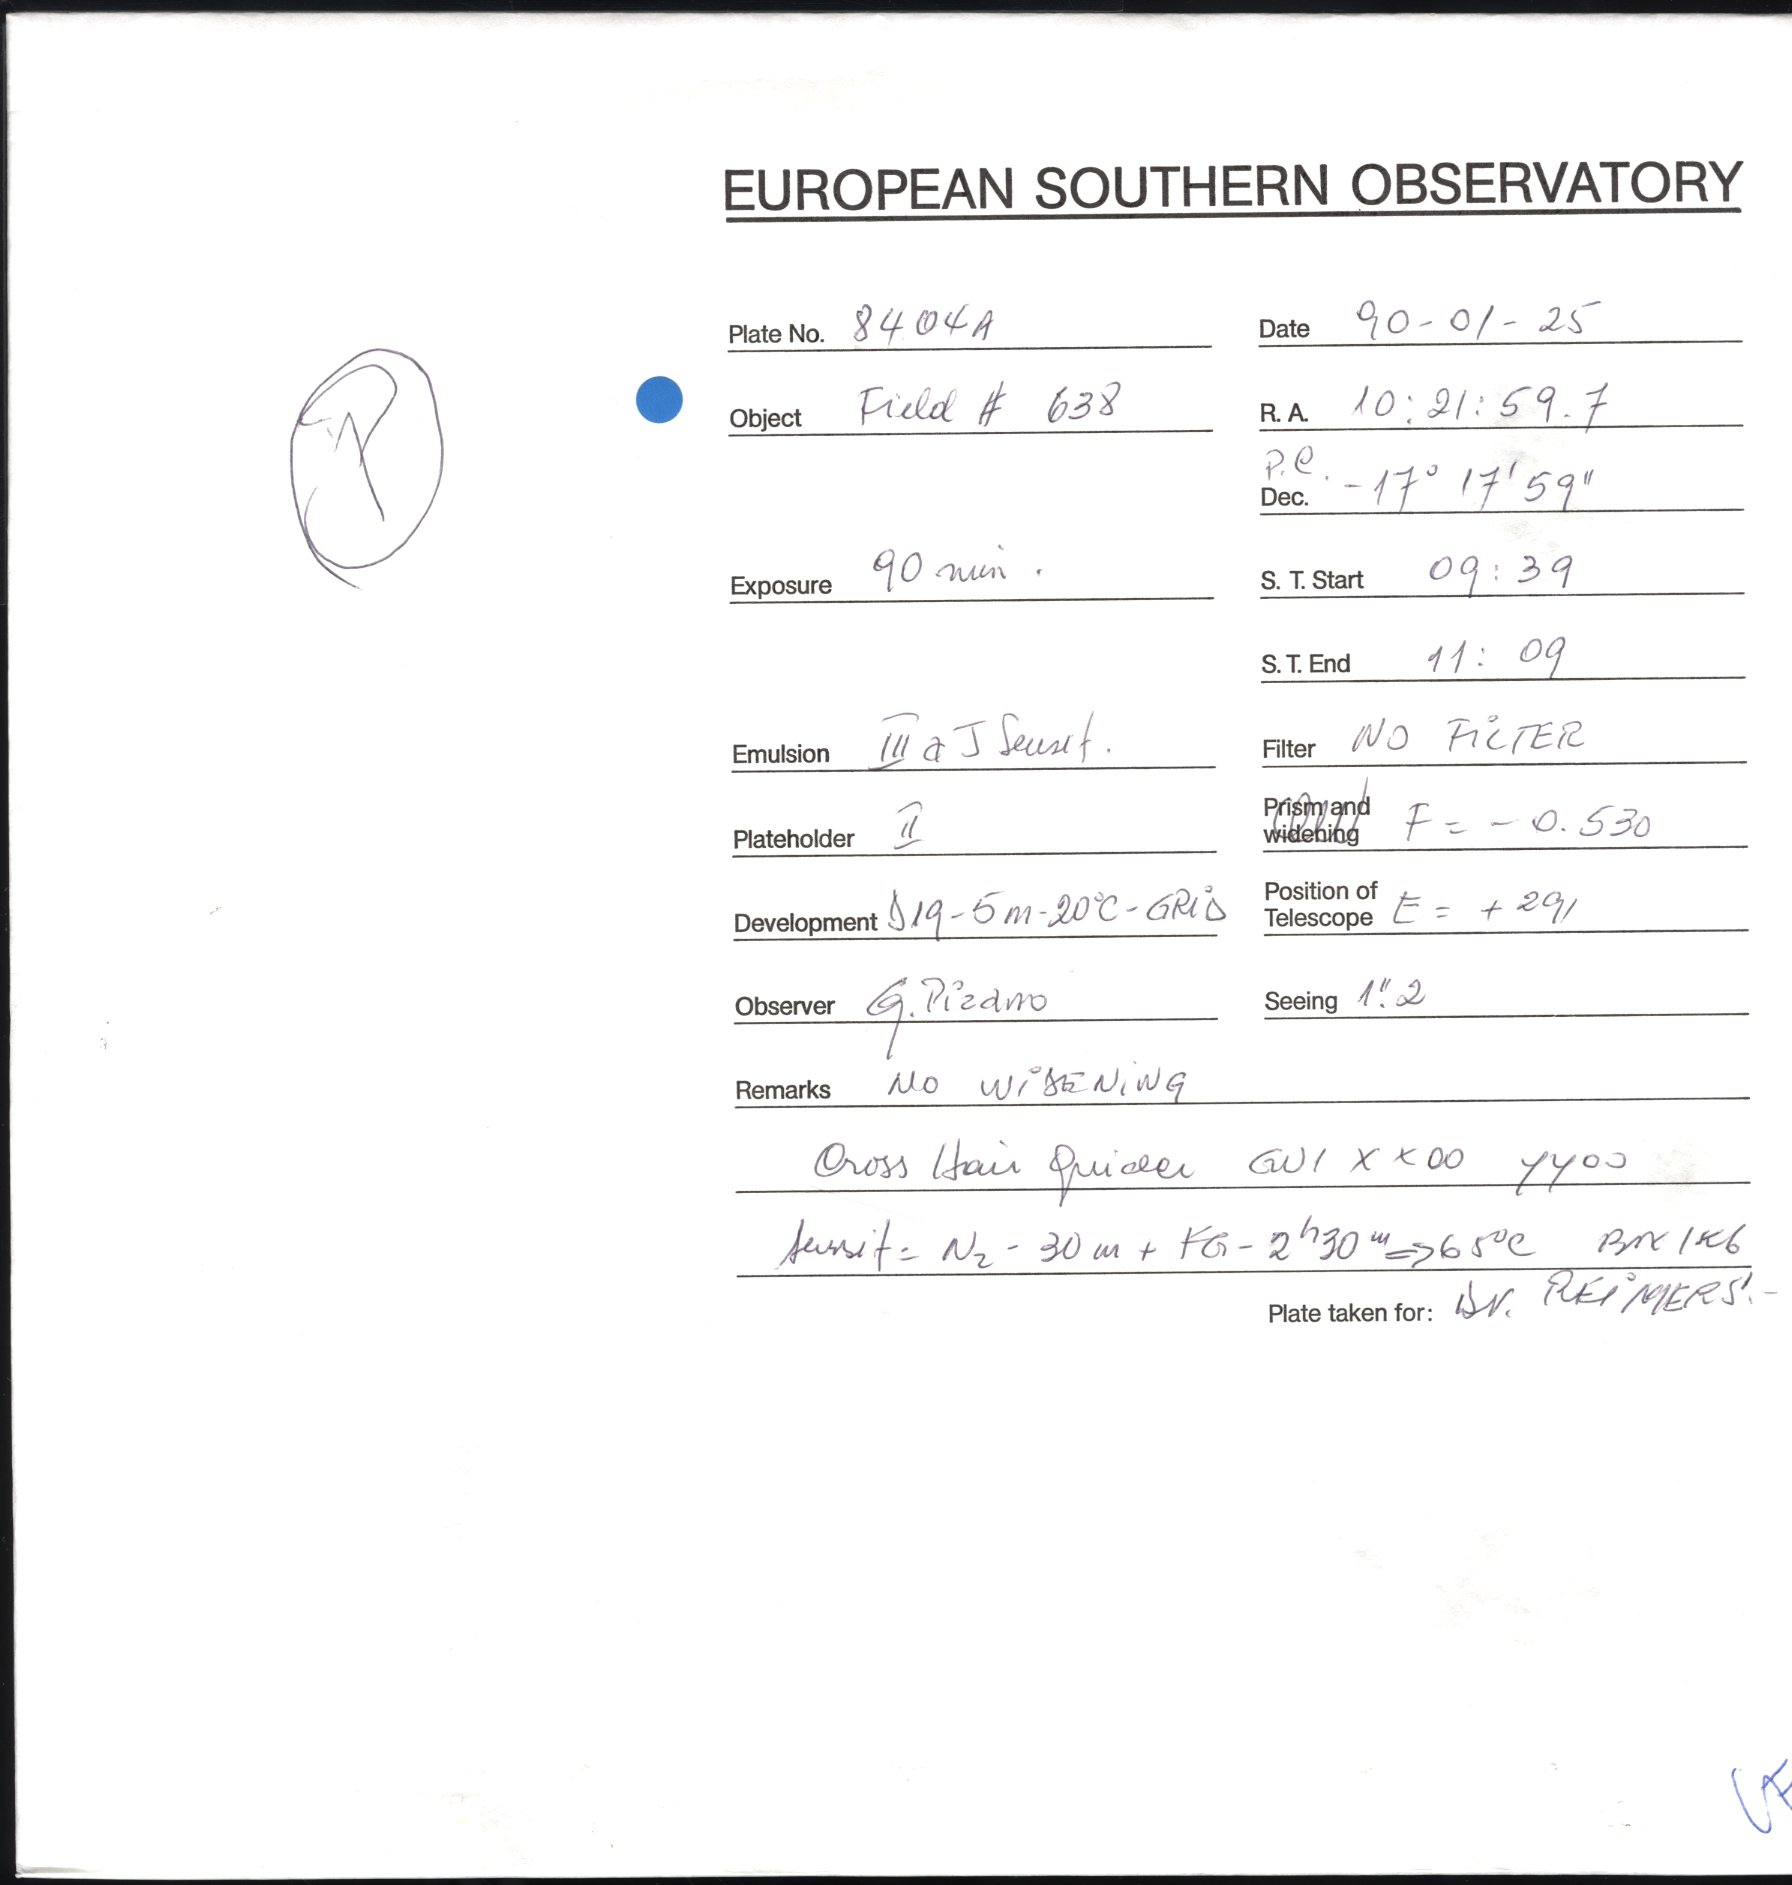 EUROPEAN SOUTHERN OBSERVATORY
Plate No. 8404A Date 90-01-25
Object Field # 638 R. A. 10:21:59.7
P.C.
Dec. -17° 17' 59"
Exposure 90 min. S. T. Start 09:39
S. T. End 11:09
Emulsion III a J Sensit. Filter NO FILTER
Plateholder II Prism and widening F = - 0.530
Development D19-5m-20°C-GRID Position of Telescope E = + 291
Observer G. Pizarro Seeing 1".2
Remarks NO WIDENING
Cross Hair Guider GUI XX00 YY00
Sensit = N2 - 30m + FG - 2h30m => 65°C
Plate taken for: Dr. REIMERS.-